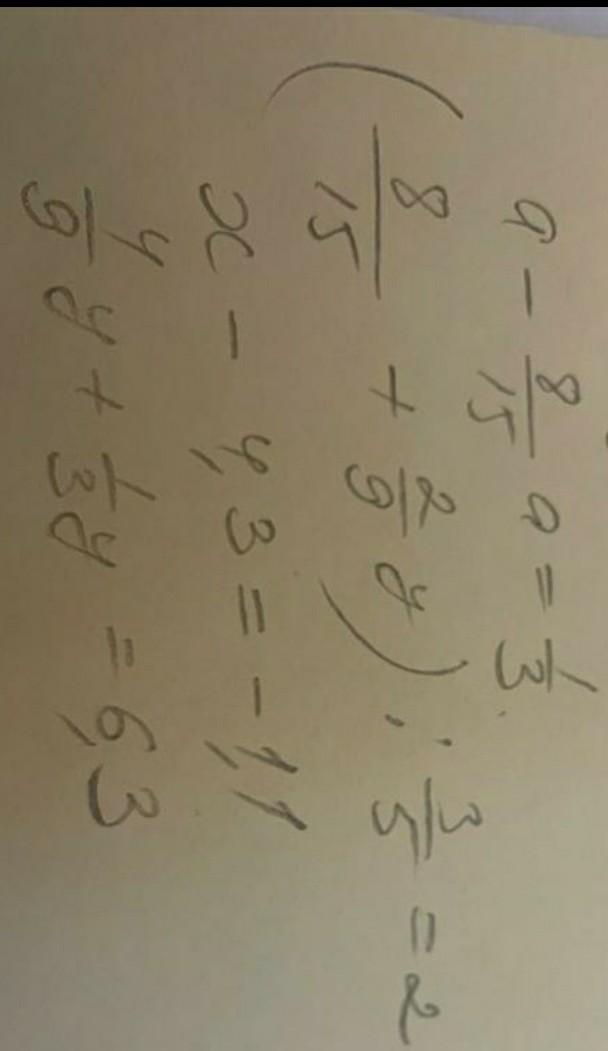 a - 8/15 a = 1/3
(8/15 + 2/9 y) : 3/5 = 2
x - 4,3 = -1,1
4/9 y + 1/3 y = 6,3